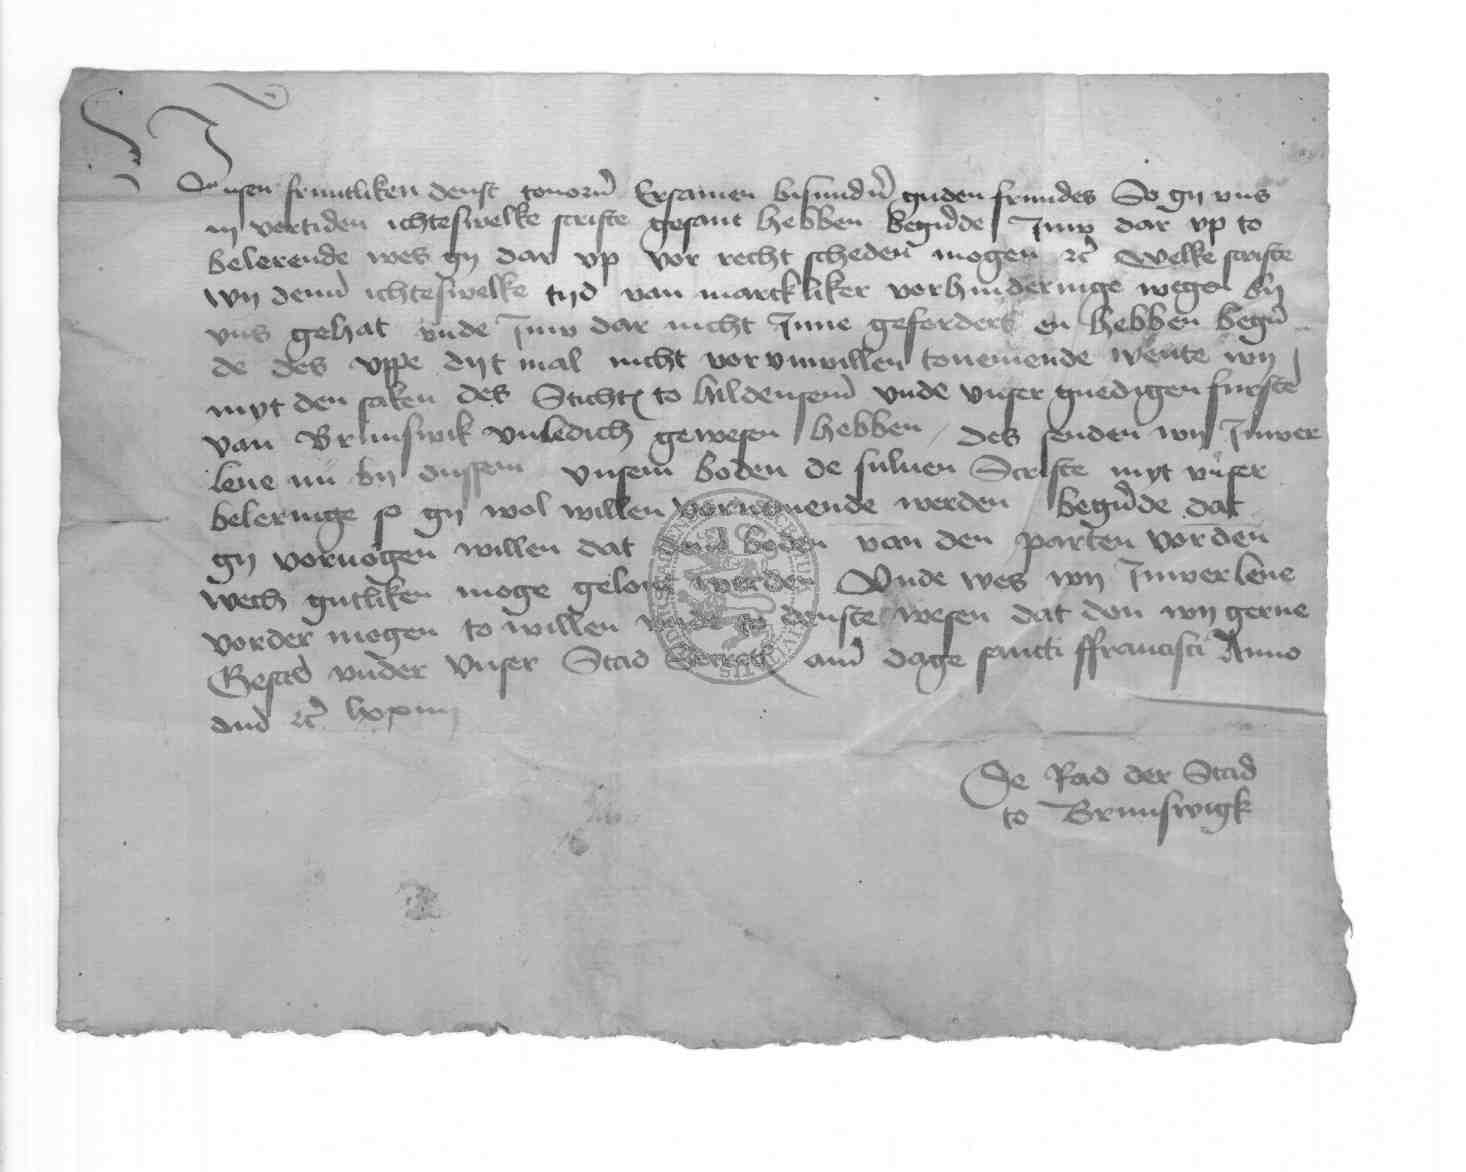 Vnsen fruntliken denst touorn̄ Ersamen bisundn̄ guden frundes So gij vns
in vortiden ichteswelke scrifte gesant hebben begerde Juw dar vp to
belerende wes gij dar vp vor recht scheden mogen ꝛc̄ Welke scrifte
wij denn̄ ichteswelke tijd van marckliker vorhinderinge wegen bij
vns gehat vnde Juw dar nicht Jnne gefordert en hebben begern̄
de des vppe dijt mal nicht vor vnwillen tonemende wente wij
myt den saken des Stichtes to hildensem̄ vnde vnser gnedigen furstē
van Brunswik vnledich gewesen hebben / des senden wij Juwer
leue nu bij dussem vnsem boden de suluen Scrifte myt vnser
beleringe so gij wol willen vornemende werden begerde dat
gij vornogen willen dat dem boden van den parten vorden
wech gutliken moge gelont werden Vnde wes wij Juwer leue
vorder mogen to willen vnde to denste wesen dat don wij gerne
Gescr̄ vnder vnser Stad Secrete am̄ dage sancti ffrancisci Anno
dn̄i ꝛc̄ lxxiiij
De Rad der Stad
to Brunswigk